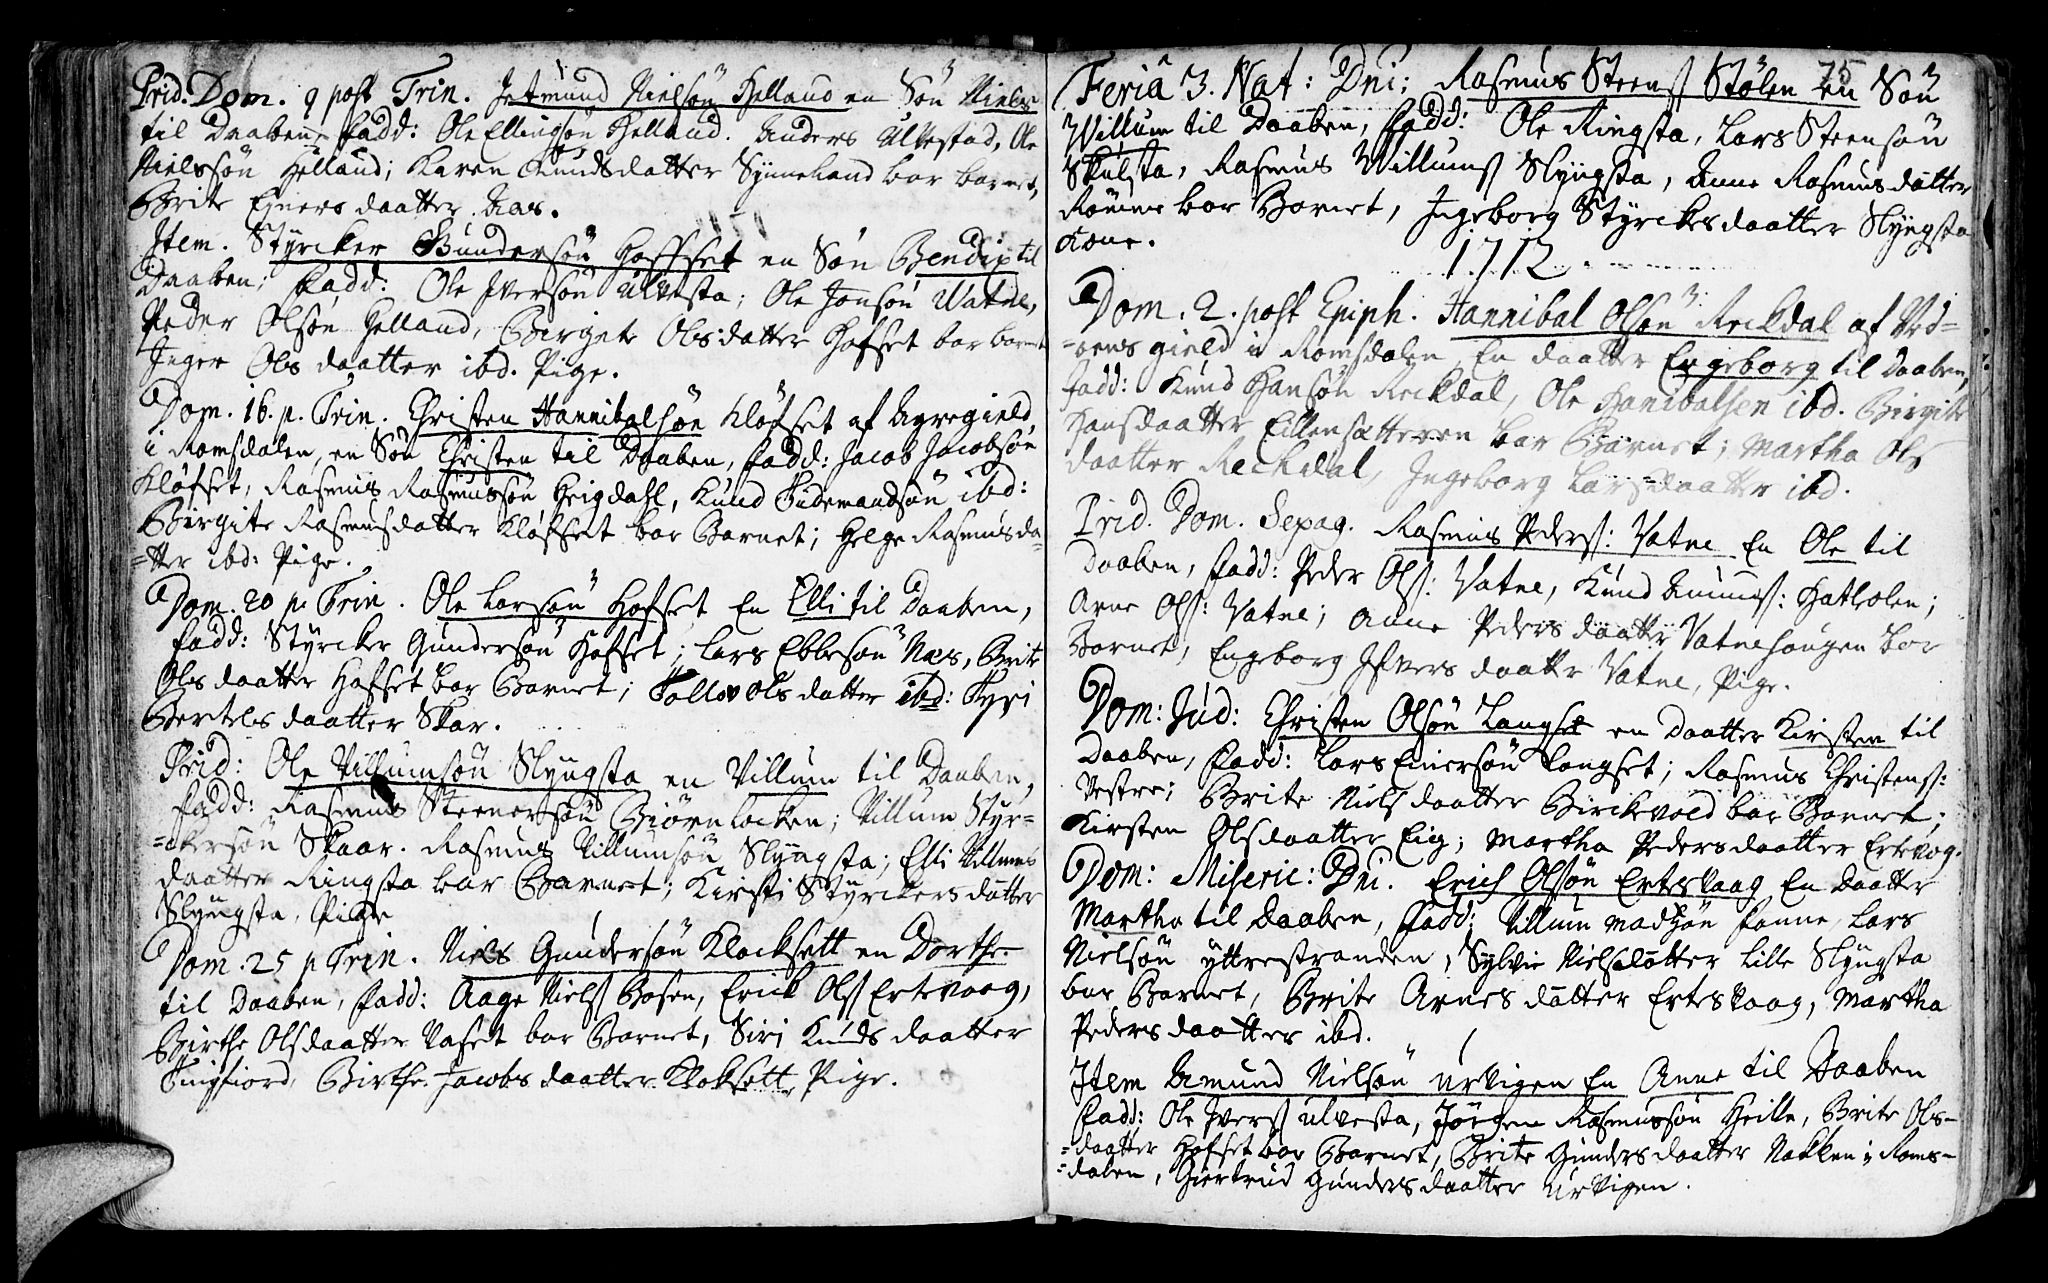 Prid. Dom. 9 post Trin. Jetmund Nielsøn Helland en Søn Niels
til Daaben, Fadd: Ole Ellingsøn Helland. Anders Ulvestad, Ole
Nielssøn Helland; Karen Knudsdatter Synneland bar barnet,
Brite Ejners daatter Aas.
Item. Stÿrcker Gundersøn Hoffset en Søn Bendix til
Daaben; Fadd: Ole Iversøn Ulvesta; Ole Jonsøn Watne,
Peder Olsøn Helland, Birgite Olsdatter Hofset bar barnet
Inger Ols daatter ibd. Pige.
Dom. 16. p. Trin. Christen Hannibalsøn Kløfset af Agregield
i Romsdalen, en Søn Christen til Daaben, Fadd: Jacob Jacobsøn
Kløfset, Rasmus Rasmussøn Heigdahl, Knud Tudemandsøn ibd:
Birgite Rasmusdatter Kløfset bar Barnet; Helge Rasmusda-
=tter ibd: Pige.
Dom. 20 p. Trin. Ole Larsøn Hofset En Elli til Daaben,
Fadd: Stÿrcker Gundersøn Hofset; Lars Ebbesøn Næs, Brite
Ols daatter Hofset bar Barnet; Ols datter ibd: Tyri
Bertels daatter Skar.
Prid: Ole Villumsøn Slÿngsta en Villum til Daaben,
Fadd: Rasmus Steenersøn Biørnlocken; Villum Styr=
=ckersøn Skaar. Rasmus Villumsøn Slÿngsta; Elli Villums
daatter Ringsta bar Barnet; Kirsti Stÿrckers datter
Slÿngsta, Pige
Dom. 25 p Trin. Niels Gundersøn Klocksett en Dorthe
til Daaben, Fadd: Aage Niels Bosen, Erick Ols Ertevaag,
Birthe Olsdaatter Vaset bar Barnet, Siri Knuds daatter
Tingfiord, Birthe Jacobs daatter Kloksett, Pige.
75
Feria 3. Nat: Dni: Rasmus Steens Stølen en Søn
Willum til Daaben, Fadd: Ole Ringsta, Lars Steensøn
Skulsta, Rasmus Willums Slÿngsta, Anne Rasmusdatter
bar Barnet, Ingeborg Stÿrckersdaatter Slÿngsta
Kone.
1712
Dom. 2. post Epiph. Hannibal Olsøn Reckdal af Ved=
=øens gield i Romsdalen, En daatter Engeborg til Daaben,
Fadd: Knud Hansøn Reckdal, Ole Hanibalsen ibd. Birgite
Hansdaatter Eillensætteren bar Barnet; Martha Ols
daatter Reckdal, Ingeborg Larsdaatter ibd.
Prid. Dom. Sepag. Rasmus Peders: Vatne En Ole til
Daaben, Fadd: Peder Ols: Vatne, Knud Hatlolen;
Arne Ols: Vatne; Anne Peders daatter Vatnehaugen bar
Barnet, Engeborg Ifvers daatter Vatne, Pige.
Dom: Jud: Christen Olsøn Langset en Daatter Kirsten til
Daaben, Fadd: Lars Einersøn Langset; Rasmus Christens:
Vestre; Brite Niels daatter Birckvold bar Barnet;
Kirsten Olsdaatter Eig; Martha Pedersdaatter Ertvog.
Dom: Miseric: Dni. Erich Olsøn Ertsvaag En Daatter
Martha til Daaben, Fadd: Villum Madzøn Fanne, Lars
Nielsøn ÿttrestranden, Sylvie Nielsdatter Lille Slÿngsta
bar Barnet, Brite Arnes datter Ertsvaag, Martha
Peders daatter ibd.
Item Amund Nielsøn Urvigen En Anne til Daaben
Fadd: Ole Ivers Ulvesta, Jørgen Rasmussøn Heille, Brite Ols-
=daatter Hofset bar Barnet, Brite Gunders daatter Nakken i Roms-
=dalen, Giertrud Gunders daatter Urvigen.